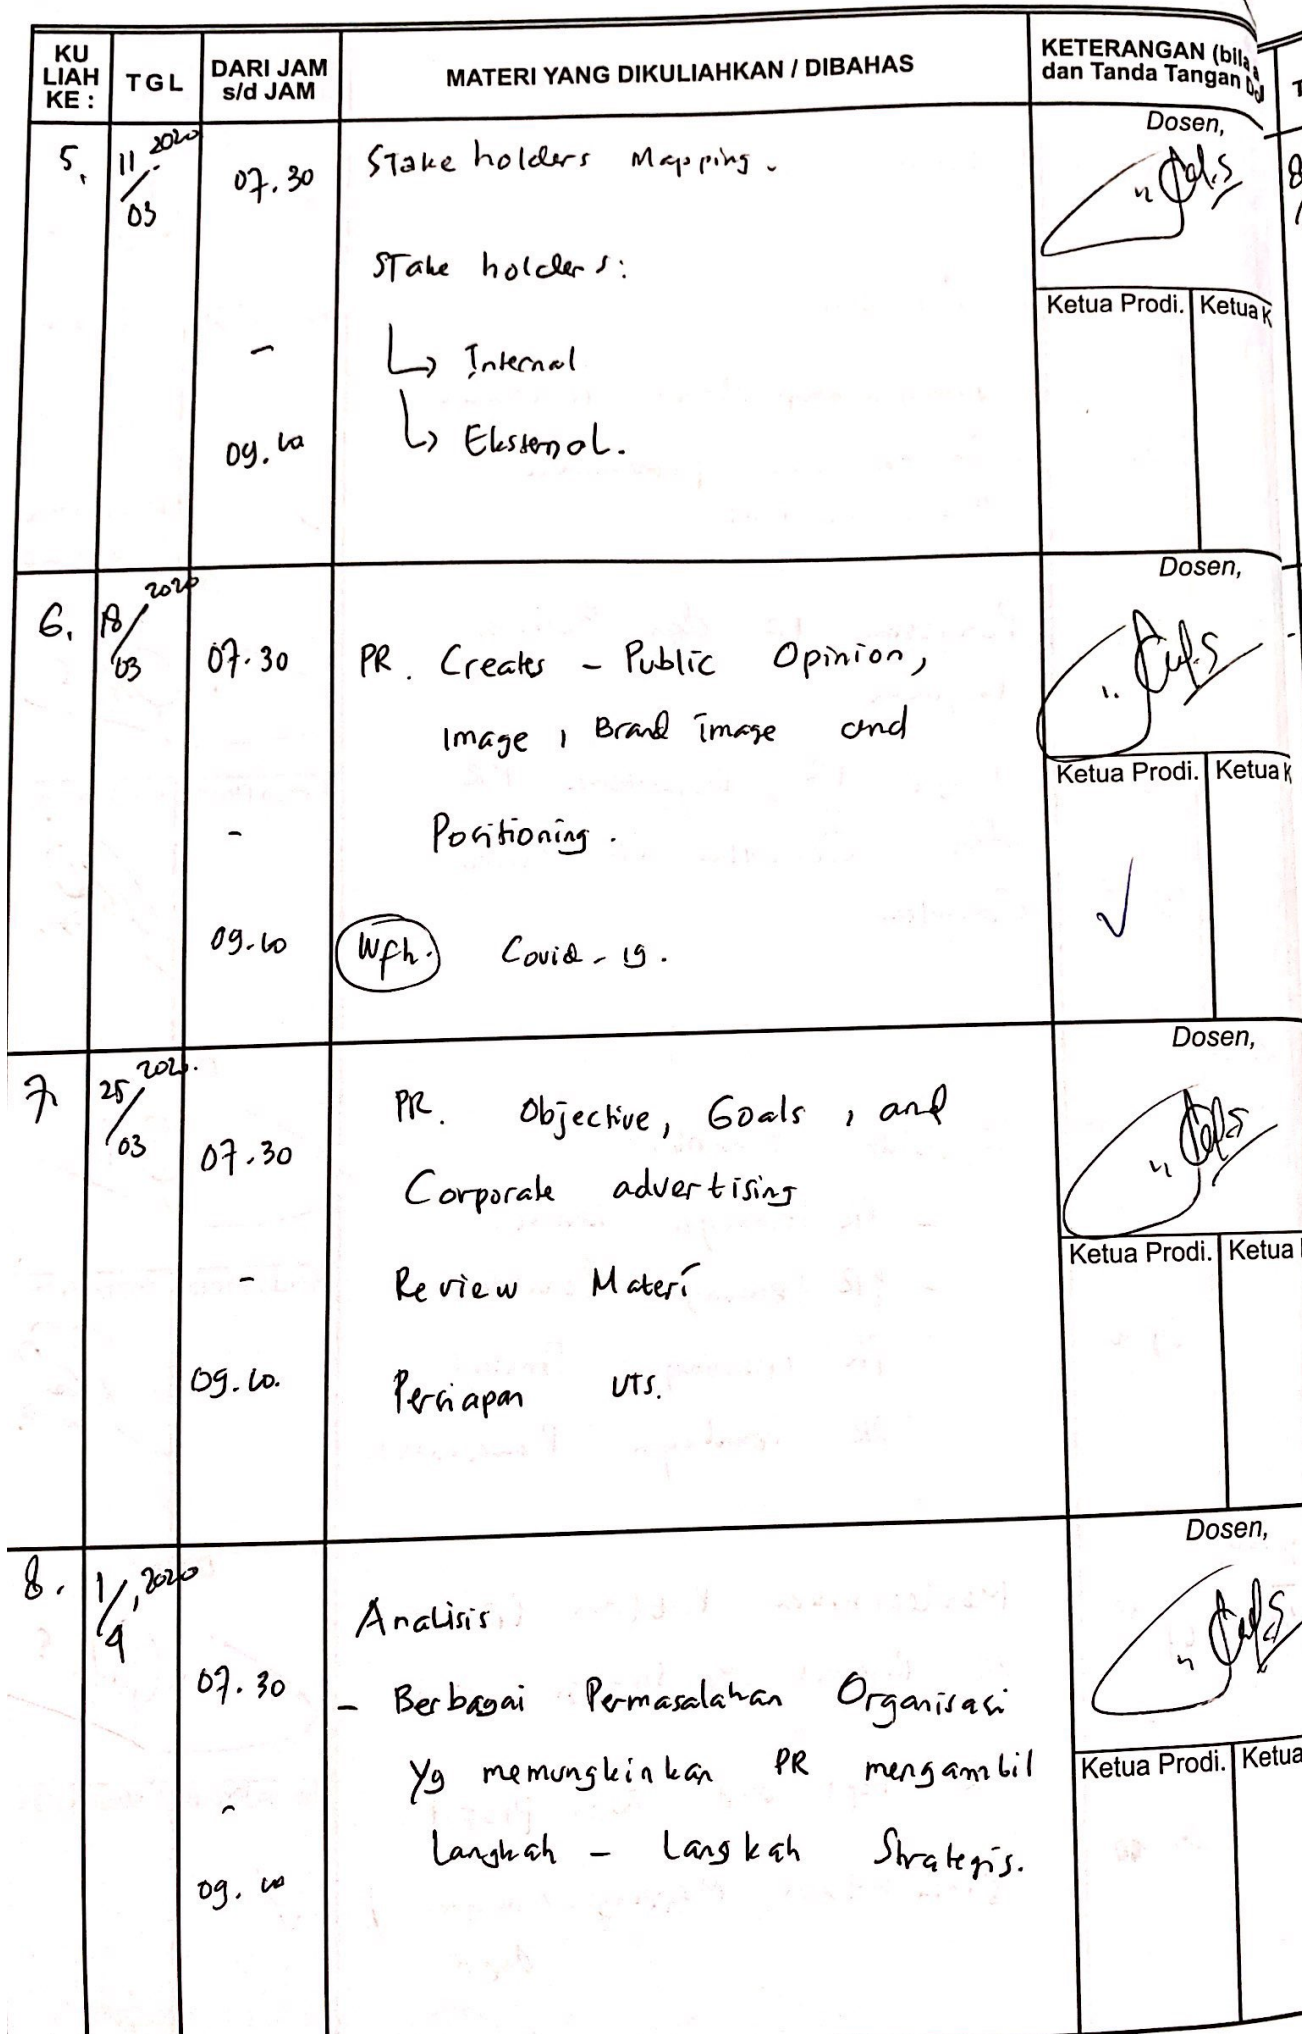 KU LIAH KE :
TGL
DARI JAM s/d JAM
MATERI YANG DIKULIAHKAN / DIBAHAS
KETERANGAN (bila
dan Tanda Tangan
5.
11/03 2020
07.30
-
Stake holders Mapping.
Stake holders:
↳ Internal
↳ Eksternal.
Dosen,
Ketua Prodi.
Ketua
6.
18/03 2020
07.30
-
09.10
PR. Creates - Public Opinion,
Image, Brand Image and
Positioning.
Wfh. Covid-19.
Dosen,
Ketua Prodi.
Ketua
✓
7.
25/03 2020.
07.30
-
09.10.
PR. Objective, Goals, and
Corporate advertising
Review Materi
Persiapan UTS.
Dosen,
Ketua Prodi.
Ketua
8.
1/4, 2020
07.30
-
09.10
Analisis
- Berbagai Permasalahan Organisasi
Yg memungkinkan PR mengambil
Langkah - Langkah Strategis.
Dosen,
Ketua Prodi.
Ketua